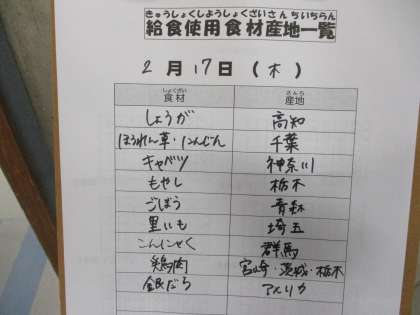 きゅうしょくしようしょくざいさんちいちらん
給食使用食材産地一覧
2月17日(木)
しょくざい さんち
食材 産地
しょうが 高知
ほうれん草・にんじん 千葉
キャベツ 神奈川
もやし 栃木
ごぼう 青森
里いも 埼玉
こんにゃく 群馬
鶏肉 宮崎・茨城・栃木
銀だら アメリカ